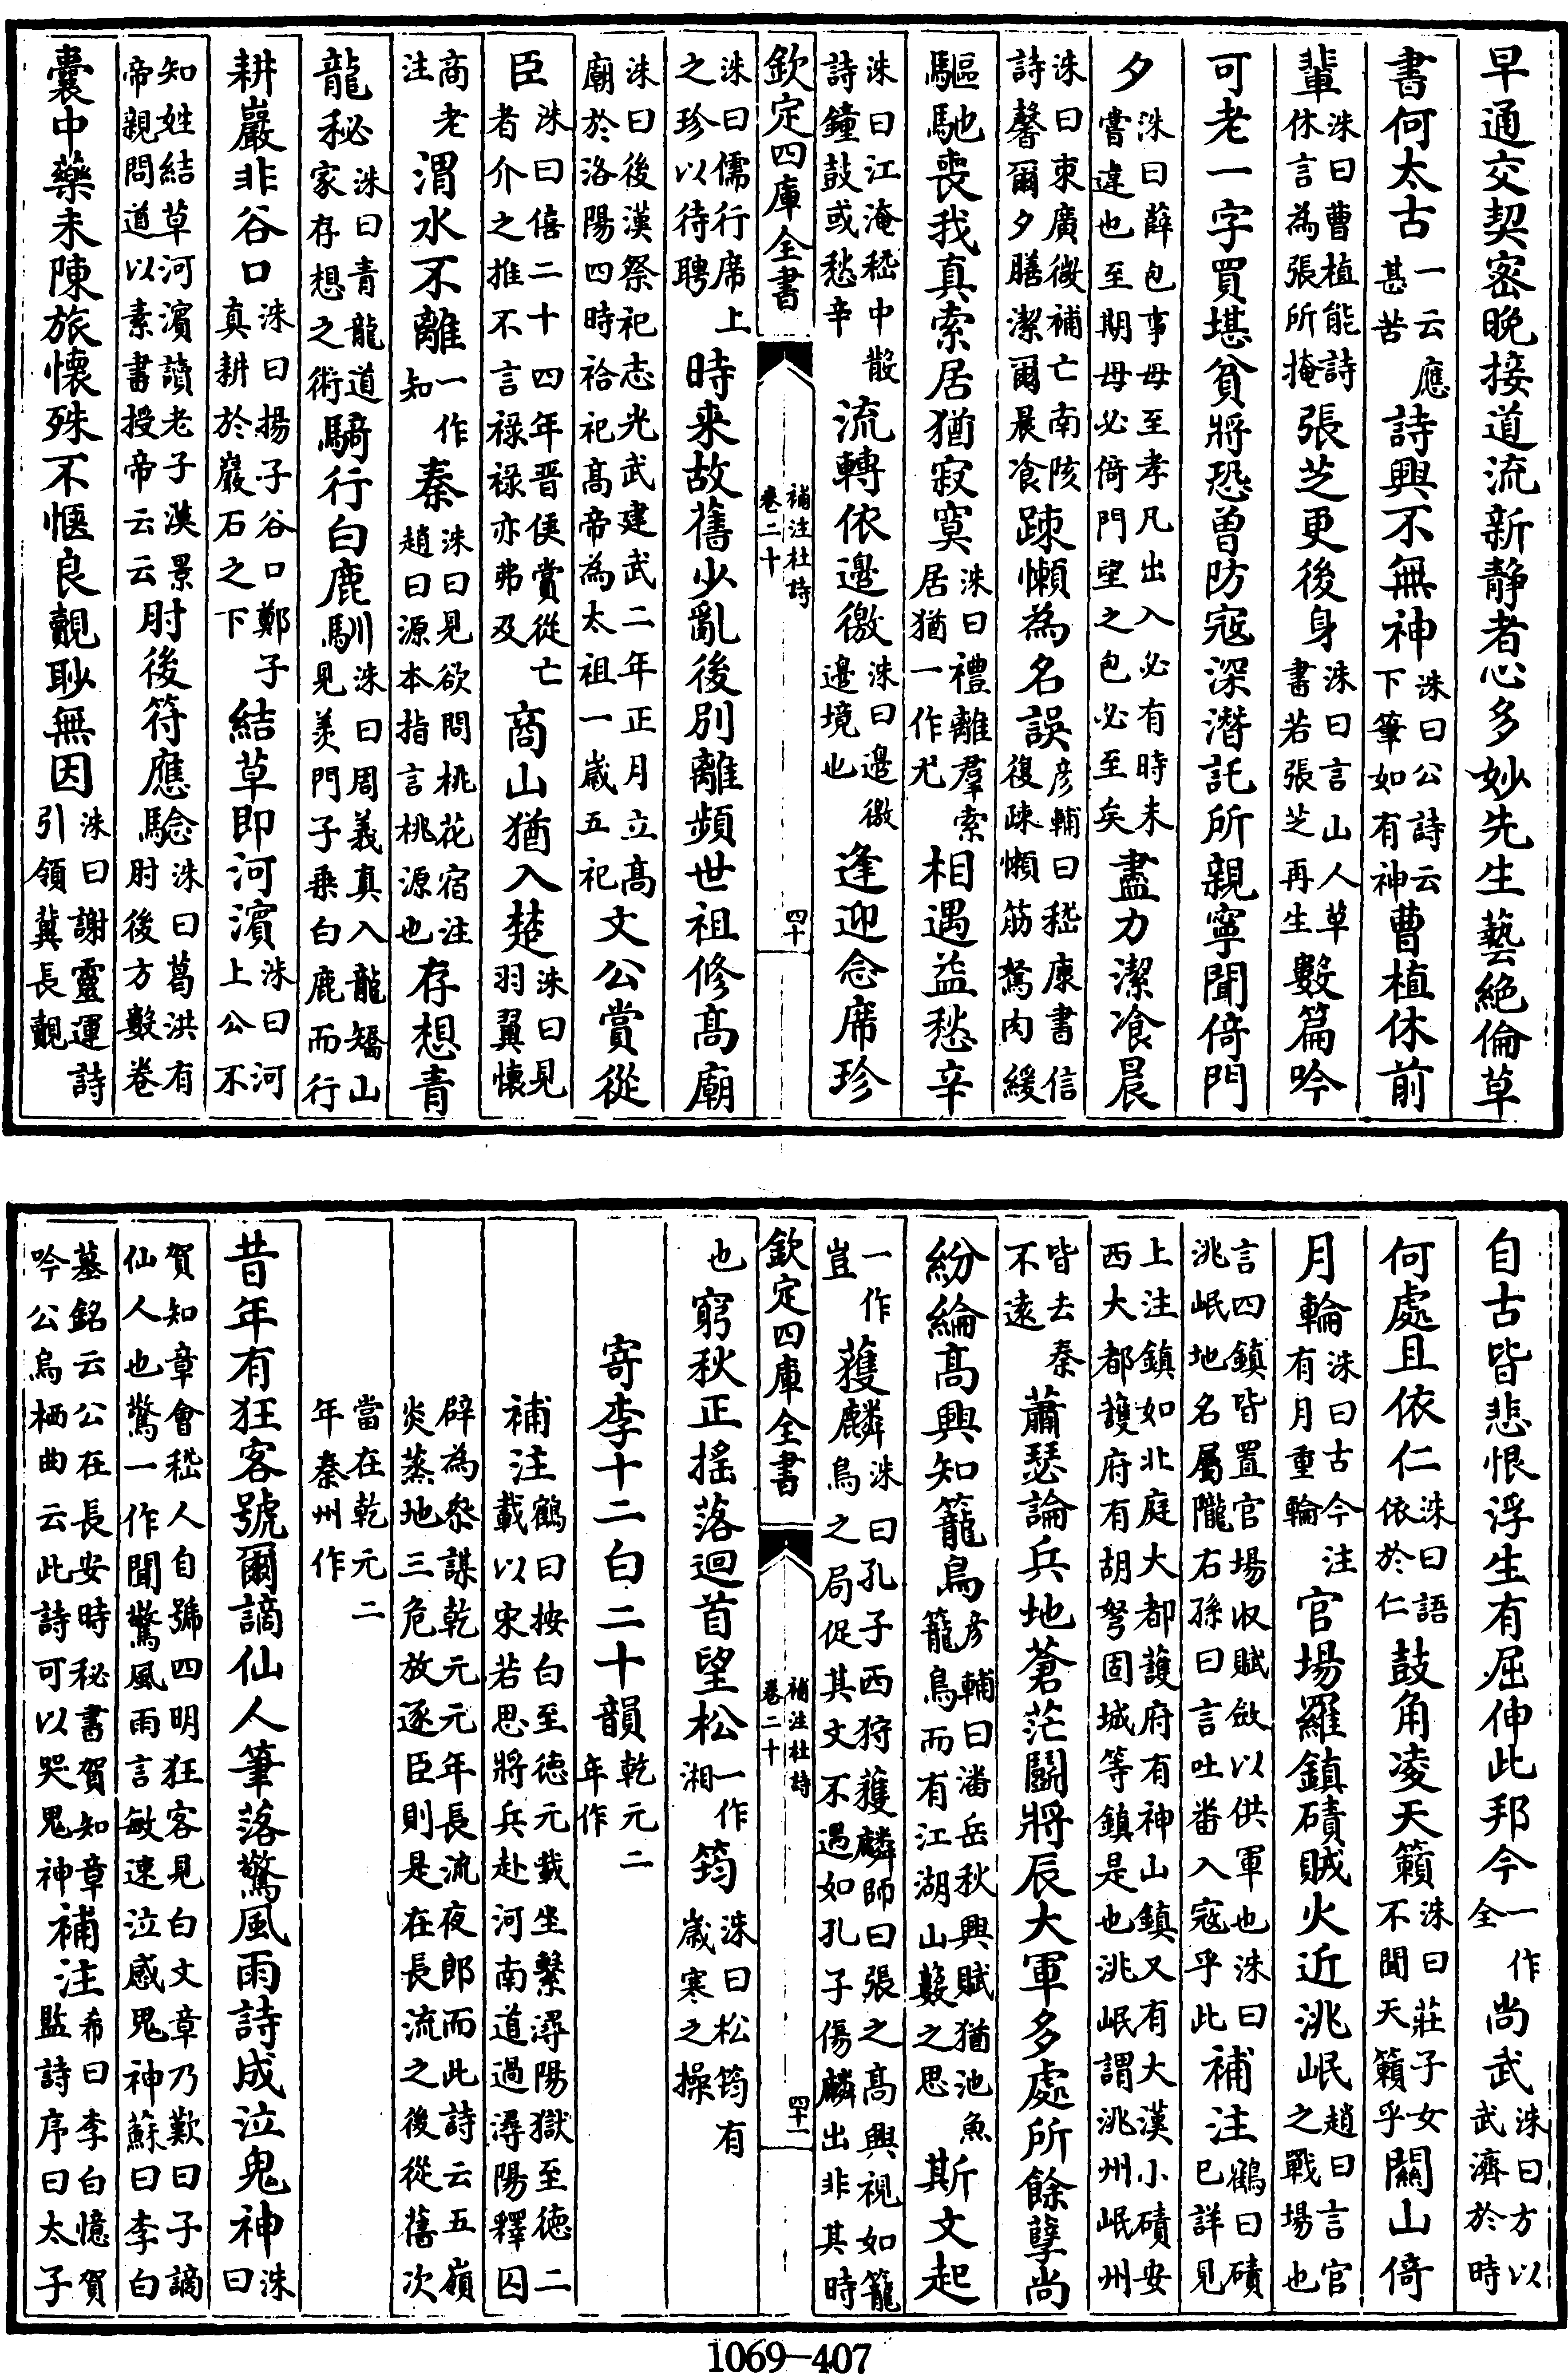 早通交契密晚接道流新静者心多妙先生藝絕倫草
書何太古一云應甚苦詩興不無神洙曰公詩云下筆如有神曹植休前
輩洙曰曹植能詩休言為張所掩張芝更後身洙曰言山人草書若張芝再生數篇吟
可老一字買堪貧將恐曾防寇深潛託所親寧聞倚門
夕洙曰薛包事母至孝凡出入必有時未嘗違也至期母必倚門望之包必至矣盡力潔飡晨
洙曰束廣微補亡南陔詩馨爾夕膳潔爾晨飡踈懶為名誤彦輔曰嵇康書信復疎懶筋駑肉緩
驅馳喪我真索居猶寂寞洙曰禮離羣索居猶一作尤相遇益愁辛
洙曰江淹嵇中散詩鐘鼓或愁辛流轉依邊徼洙曰邊徼邊境也逢迎念席珍
欽定四庫全書 補注杜詩卷二十 四十
洙曰儒行席上之珍以待聘時来故舊少亂後別離頻世祖修髙廟
洙曰後漢祭祀志光武建武二年正月立髙廟於洛陽四時袷祀髙帝為太祖一嵗五祀文公賞從
臣洙曰僖二十四年晋侯賞從亡者介之推不言禄禄亦弗及商山猶入楚洙曰見羽翼懷
商老注渭水不離一作知秦洙曰見欲問桃花宿注趙曰源本指言桃源也存想青
龍秘洙曰青龍道家存想之術騎行白鹿馴洙曰周義真入龍矯山見羨門子乗白鹿而行
耕巖非谷口洙曰揚子谷口鄭子真耕於巖石之下結草即河濱洙曰河上公不
知姓結草河濱讀老子漢景帝親問道以素書授帝云云肘後符應驗洙曰葛洪有肘後方數卷
囊中藥未陳旅懷殊不愜良覿眇無因洙曰謝靈運詩引領冀長覿
自古皆悲恨浮生有屈伸此邦今一作全尚武洙曰方以武濟於時
何處且依仁洙曰語依於仁鼓角凌天籟洙曰莊子女不聞天籟乎關山倚
月輪洙曰古今注有月重輪官場羅鎮磧賊火近洮岷趙曰言官之戰場也
言四鎮皆置官場收賦斂以供軍也洙曰洮岷地名屬隴右孫曰言吐畨入寇乎此補注鶴曰磧已詳見
上注鎮如北庭大都護府有神山鎮又有大漠小磧安西大都護府有胡弩固城等鎮是也洮岷謂洮州岷州
皆去秦不逺蕭瑟論兵地蒼茫鬬將辰大軍多處所餘孽尚
紛綸髙興知籠鳥彦輔曰潘岳秋興賦猶池魚籠鳥而有江湖山藪之思斯文起
一作豈獲麟洙曰孔子西狩獲麟師曰張之髙興視如籠鳥之局促其文不遇如孔子傷麟出非其時
欽定四庫全書 補注杜詩卷二十 四十一
也窮秋正揺落迴首望松一作湘筠洙曰松筠有嵗寒之操
寄李十二白二十韻乾元二年作
補注鶴曰按白至德元載坐繫潯陽獄至德二載以宋若思將兵赴河南道過潯陽釋囚
辟為叅謀乾元元年長流夜郎而此詩云五嶺炎蒸地三危放逐臣則是在長流之後從舊次
當在乾元二年秦州作
昔年有狂客號爾謫仙人筆落驚風雨詩成泣鬼神洙曰
賀知章會稽人自號四明狂客見白文章乃歎曰子謫仙人也驚一作聞驚風雨言敏速泣感鬼神蘇曰李白
墓銘云公在長安時秘書賀知章吟公烏栖曲云此詩可以哭鬼神補注希曰李白憶賀監詩序曰太子
1069—407